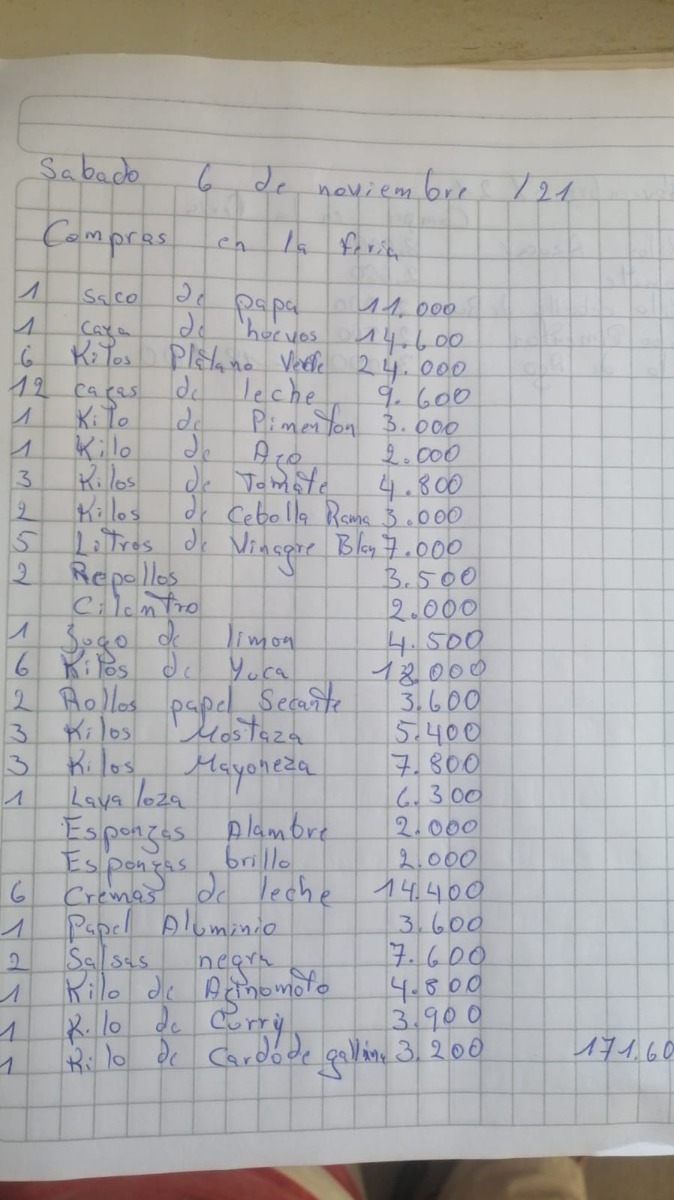 Sabado 6 de noviembre /21
Compras en la feria
1 saco de papa 11.000
1 caga de hoevos 14.600
6 Kilos Plátano Verde 24.000
12 cagas de leche 9.600
1 Kilo de Pimenton 3.000
1 Kilo de Ago 2.000
3 Kilos de Tomate 4.800
2 Kilos de Cebolla Rama 3.000
5 Litros de Vinagre Blan 7.000
2 Repollos 3.500
Cilentro 2.000
1 Jugo de limon 4.500
6 Kilos de Yuca 18.000
2 Rollos papel Secante 3.600
3 Kilos Mostaza 5.400
3 Kilos Mayoneza 7.800
1 Lava loza 6.300
Esponzas Alambre 2.000
Esponzas brillo 2.000
6 Cremas de leche 14.400
1 Papel Aluminio 3.600
2 Salsas negra 7.600
1 Kilo de Aginomoto 4.800
1 Kilo de Curry 3.900
1 Kilo de Cardo de gallina 3.200 171.60